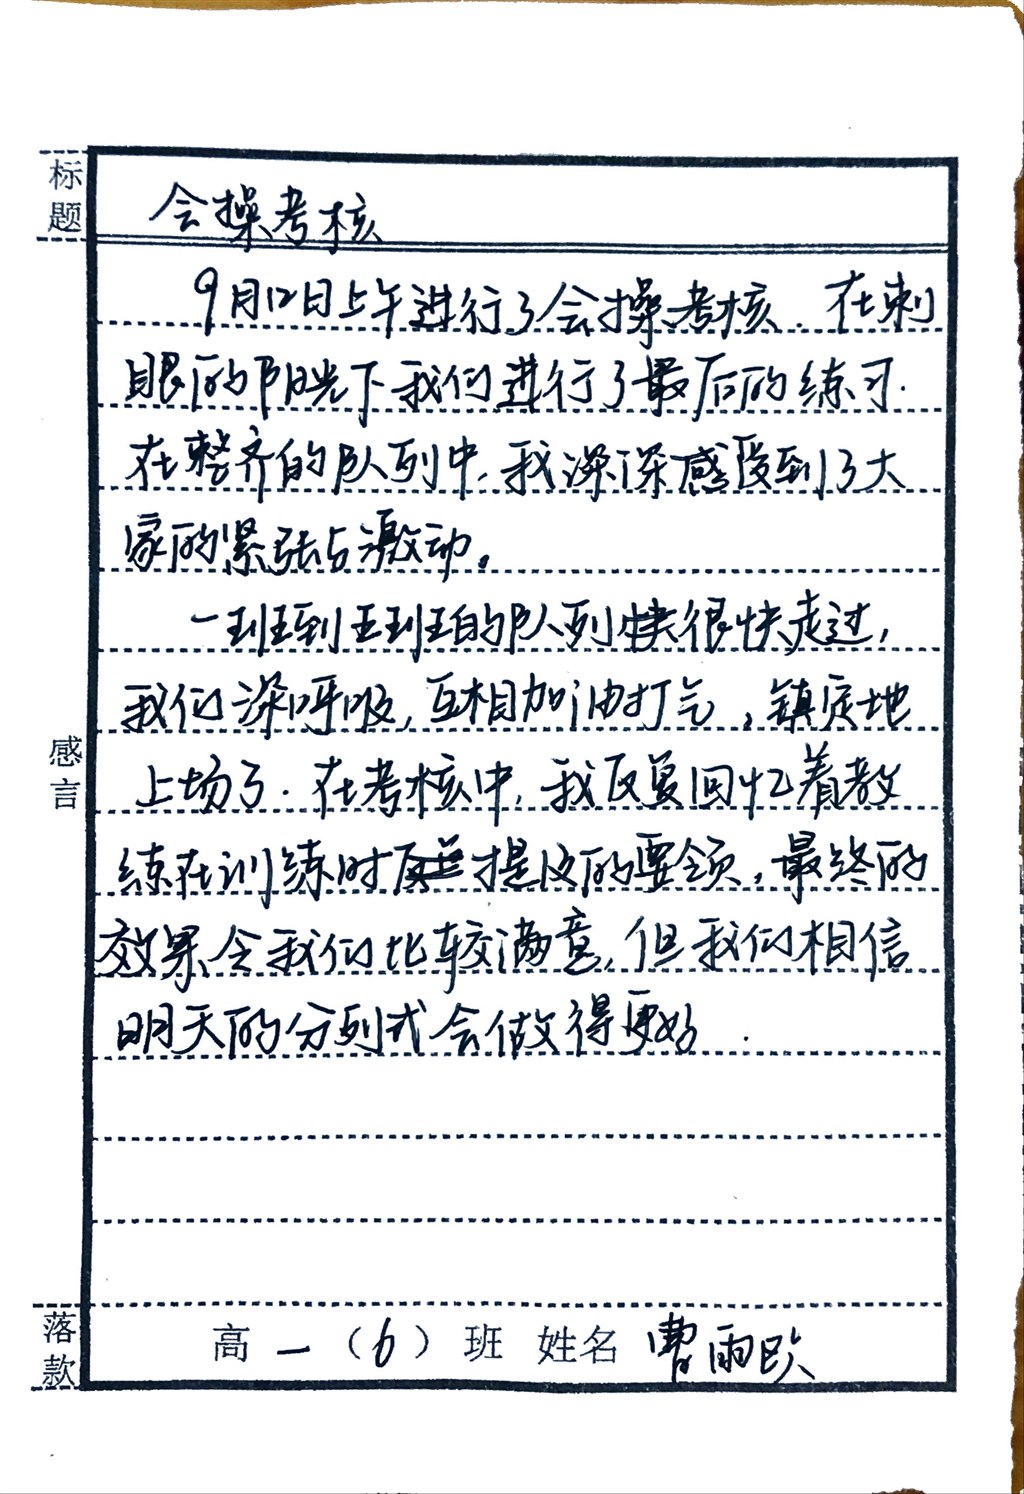 标题
会操考核
9月12日上午进行了会操考核.在刺
眼的阳光下我们进行了最后的练习.
在整齐的队列中,我深深感受到了大
家的紧张与激动。
一班到五班的队列快很快走过,
我们深呼吸,互相加油打气,镇定地
上场了.在考核中,我反复回忆着教
练在训练时提及的要领,最终的
效果令我们比较满意,但我们相信
明天的分列式会做得更好.
感言
落款
高一(6)班 姓名 曹雨欧